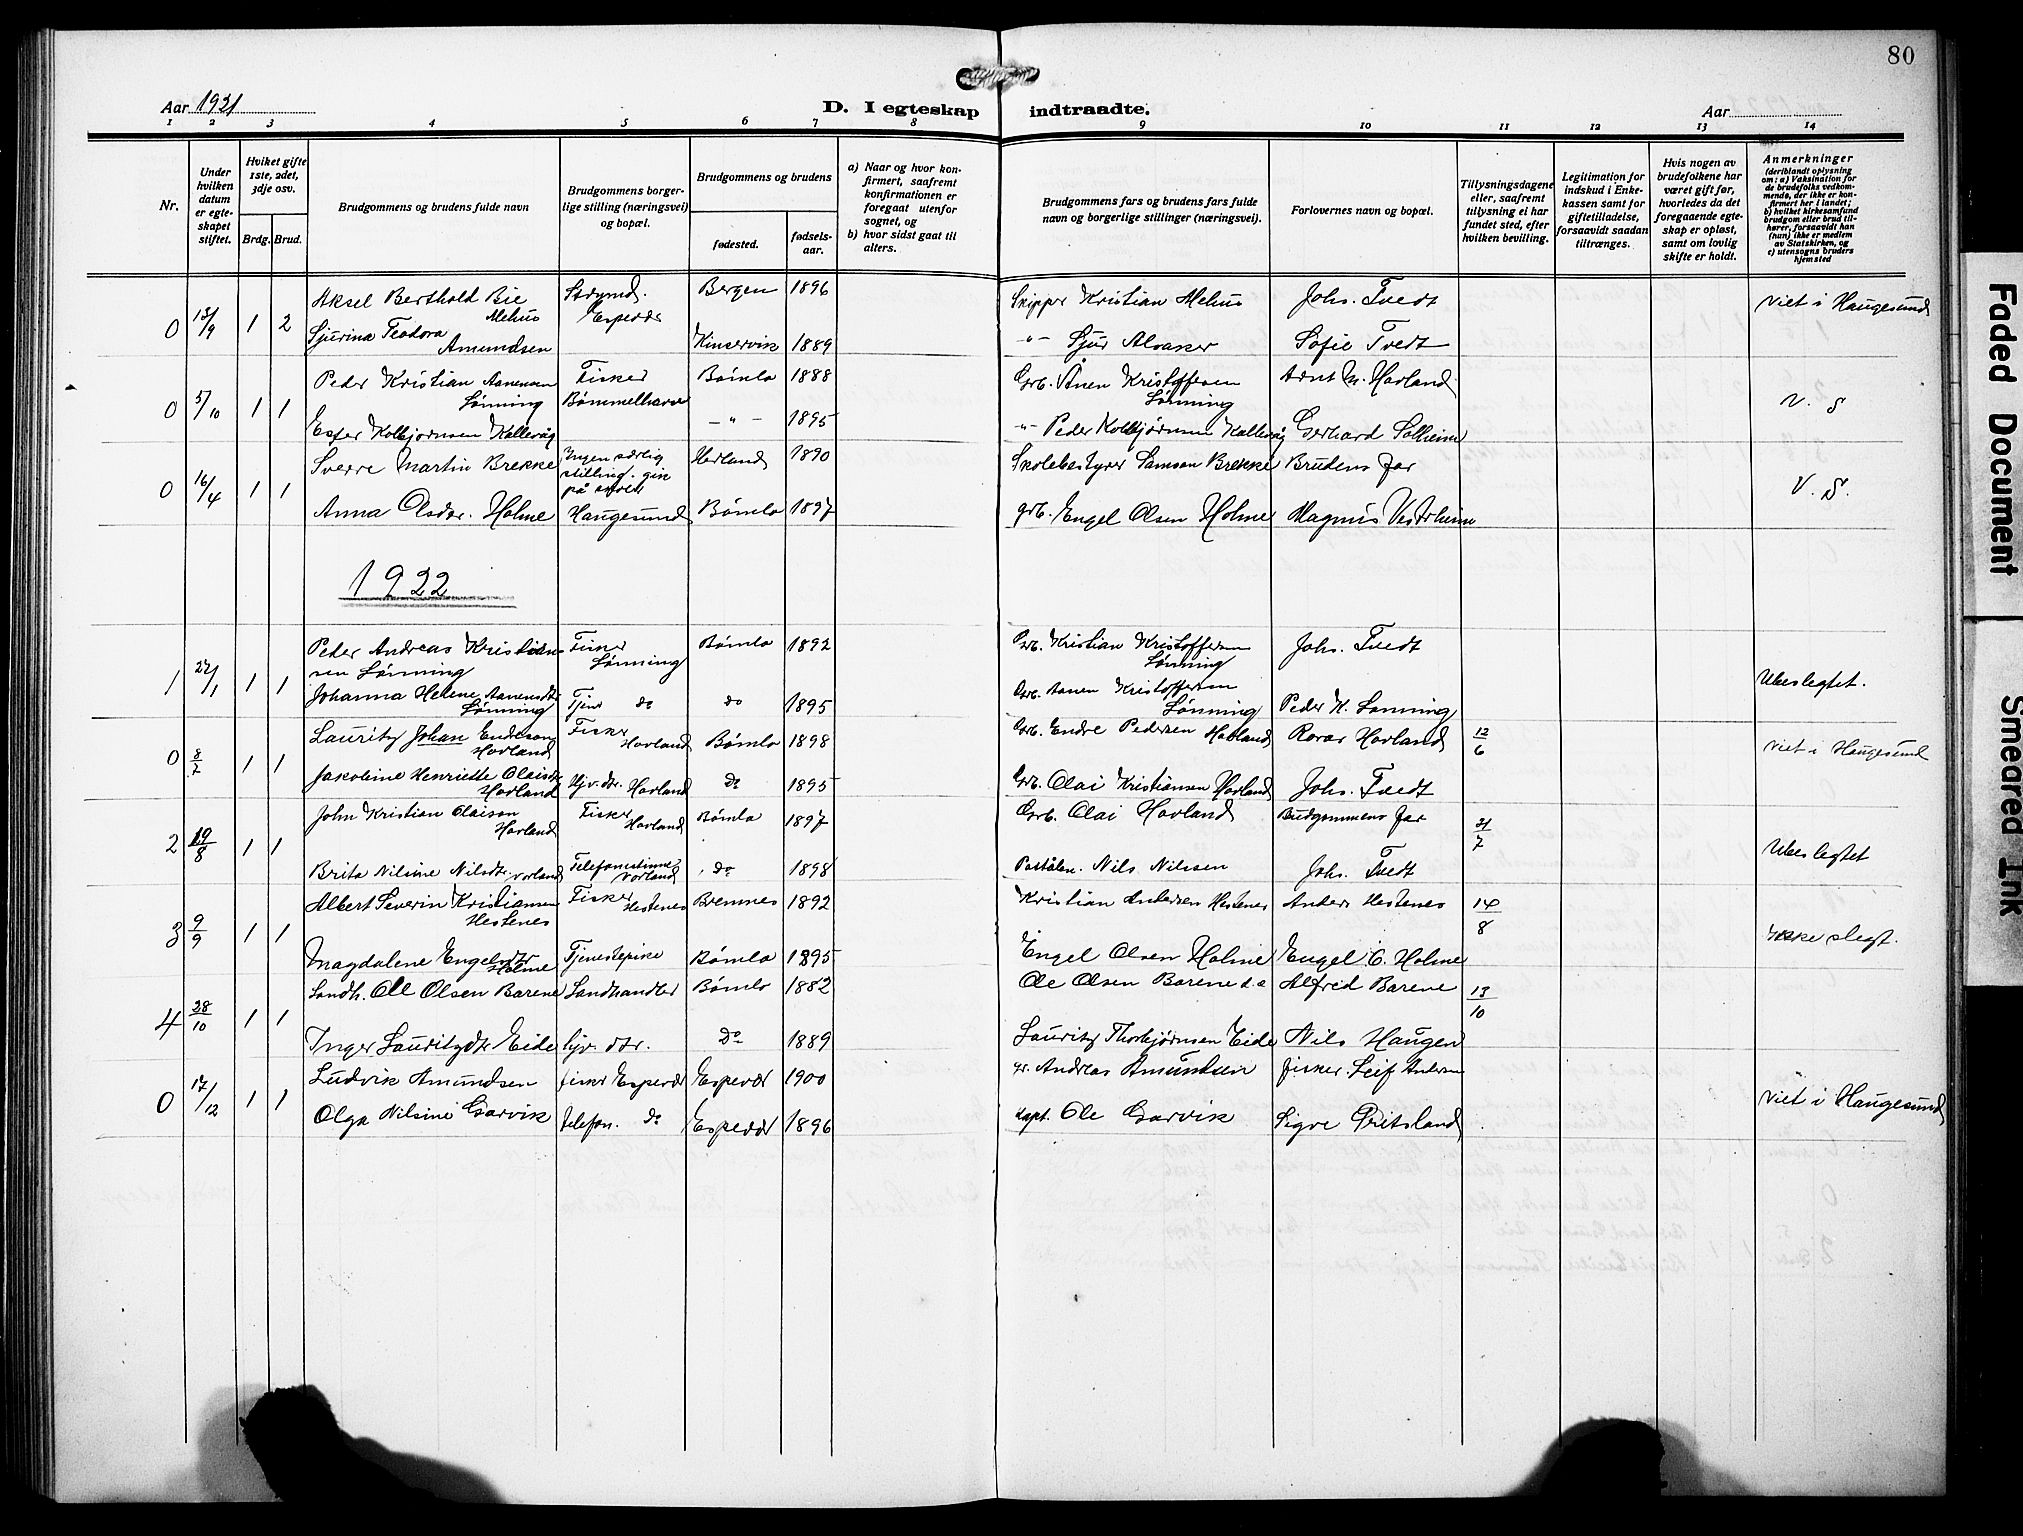 80
Aar 1921
D. I egteskap indtraadte.
Aar
1 2 3 4 5 6 7 8 9 10 11 12 13 14
Nr.
Under hvilken datum er egteskapet stiftet.
Hviket gifte 1ste, 2det, 3dje osv.
Brdg. Brud.
Brudgommens og brudens fulde navn
Brudgommens borgerlige stilling (næringsvei) og bopæl.
Brudgommens og brudens
fødested.
fødselsaar.
a) Naar og hvor konfirmert, saafremt konfirmationen er foregaat utenfor sognet, og
b) hvor sidst gaat til alters.
Brudgommens fars og brudens fars fulde navn og borgerlige stillinger (næringsvei).
Forlovernes navn og bopæl.
Tillysningsdagene eller, saafremt tillysning ei har fundet sted, efter hvilken bevilling.
Legitimation for indskud i Enkekassen samt for giftetilladelse, forsaavidt saadan tiltrænges.
Hvis nogen av brudefolkene har været gift før, hvorledes da det foregaaende egteskap er opløst, samt om lovlig skifte er holdt.
Anmerkninger (deriblandt oplysning om: a) Vaksination for de brudefolks vedkommende, der ikke er konfirmert her i landet; b) hvilket kirkesamfund brudgom eller brud tilhører, forsaavidt han (hun) ikke er medlem av Statskirken, og c) utensogns bruders hjemsted
0 13/9 1 2 Aksel Berthold Bie Mehus Styrmd. Espevær Bergen 1896 Skipper Kristian Mehus Johs. Tvedt Viet i Haugesund
Sjurina Teodora Amundsen Kinservik 1889 -"- Sjur Alsaker Sofie Tvedt
0 5/10 1 1 Peder Kristian Aanensen Lønning Fisker Bømmelhavn Bømlo 1888 Grb. Ånen Kristoffersen Lønning Arnt M. Hovland V. S
Ester Kolbjørnsen Kallevåg -"- 1895 -"- Peder Kolbjørnsen Kallevåg Gerhard Solheim
0 16/4 1 1 Sverre Martin Brekke Ingen særlig stilling. gik på skole Hovland 1890 Skolebestyrer Samson Brekke Brudens far V. S.
Anna Olsdr. Holme Haugesund Bømlo 1897 grb. Engel Olsen Holme Magnus Vestrheim
1922
1 22/1 1 1 Peder Andreas Kristiansen Lønning Fisker Lønning Bømlo 1892 Grb. Kristian Kristoffersen Lønning Johs. Tvedt Ubeslegtet.
Johanna Helene Aanensdtr Lønning Tjen. do do 1895 Grb. Aanen Kristoffersen Lønning Peder K. Lønning
0 8/7 1 1 Lauritz Johan Endreson Hovland Fisker Hovland Bømlo 1898 Grb. Endre Pedersen Hovland Roar Hovland 12/6 Viet i Haugesund
Jakobine Henriette Olaisdtr Hovland Hjv. dtr. Hovland do 1895 Grb. Olai Kristiansen Hovland Johs. Tvedt
2 19/8 1 1 John Kristian Olaison Hovland Fisker Hovland Bømlo 1897 Grb. Olai Hovland Budgommens far 31/7 Ubeslegtet
Brita Nilsine Nilsdtr. Vorland Telefonistinne Vorland do 1898 Poståbn. Nils Nilssen Johs. Tvedt
3 9/9 1 1 Albert Severin Kristiansen Hestenes Fisker Hestenes Bremnes 1892 Kristian Andersen Hestenes Anders Hestenes 14/8 Ikke slegt.
Magdalene Engelsdtr Holme Tjenestepike Bømlo 1895 Engel Olsen Holme Engel O. Holme
4 28/10 1 1 Landh. Ole Olsen Barene Landhandler Bømlo 1882 Ole Olsen Barene d.e Alfred Barene 13/10
Inger Lauritzdtr Eide hjv. dtr. do 1889 Lauritz Thorbjørnsen Eide Nils Haugen
0 17/12 1 1 Ludvik Amundsen fisker Espevær Espevær 1900 gr. Andreas Amundsen fisker Leif Andersen Viet i Haugesund
Olga Nilsine Gjørvik telefon. do Espevær 1896 kapt. Ole Gjørvik Sigve Gritsland
Faded Document
Smeared Ink